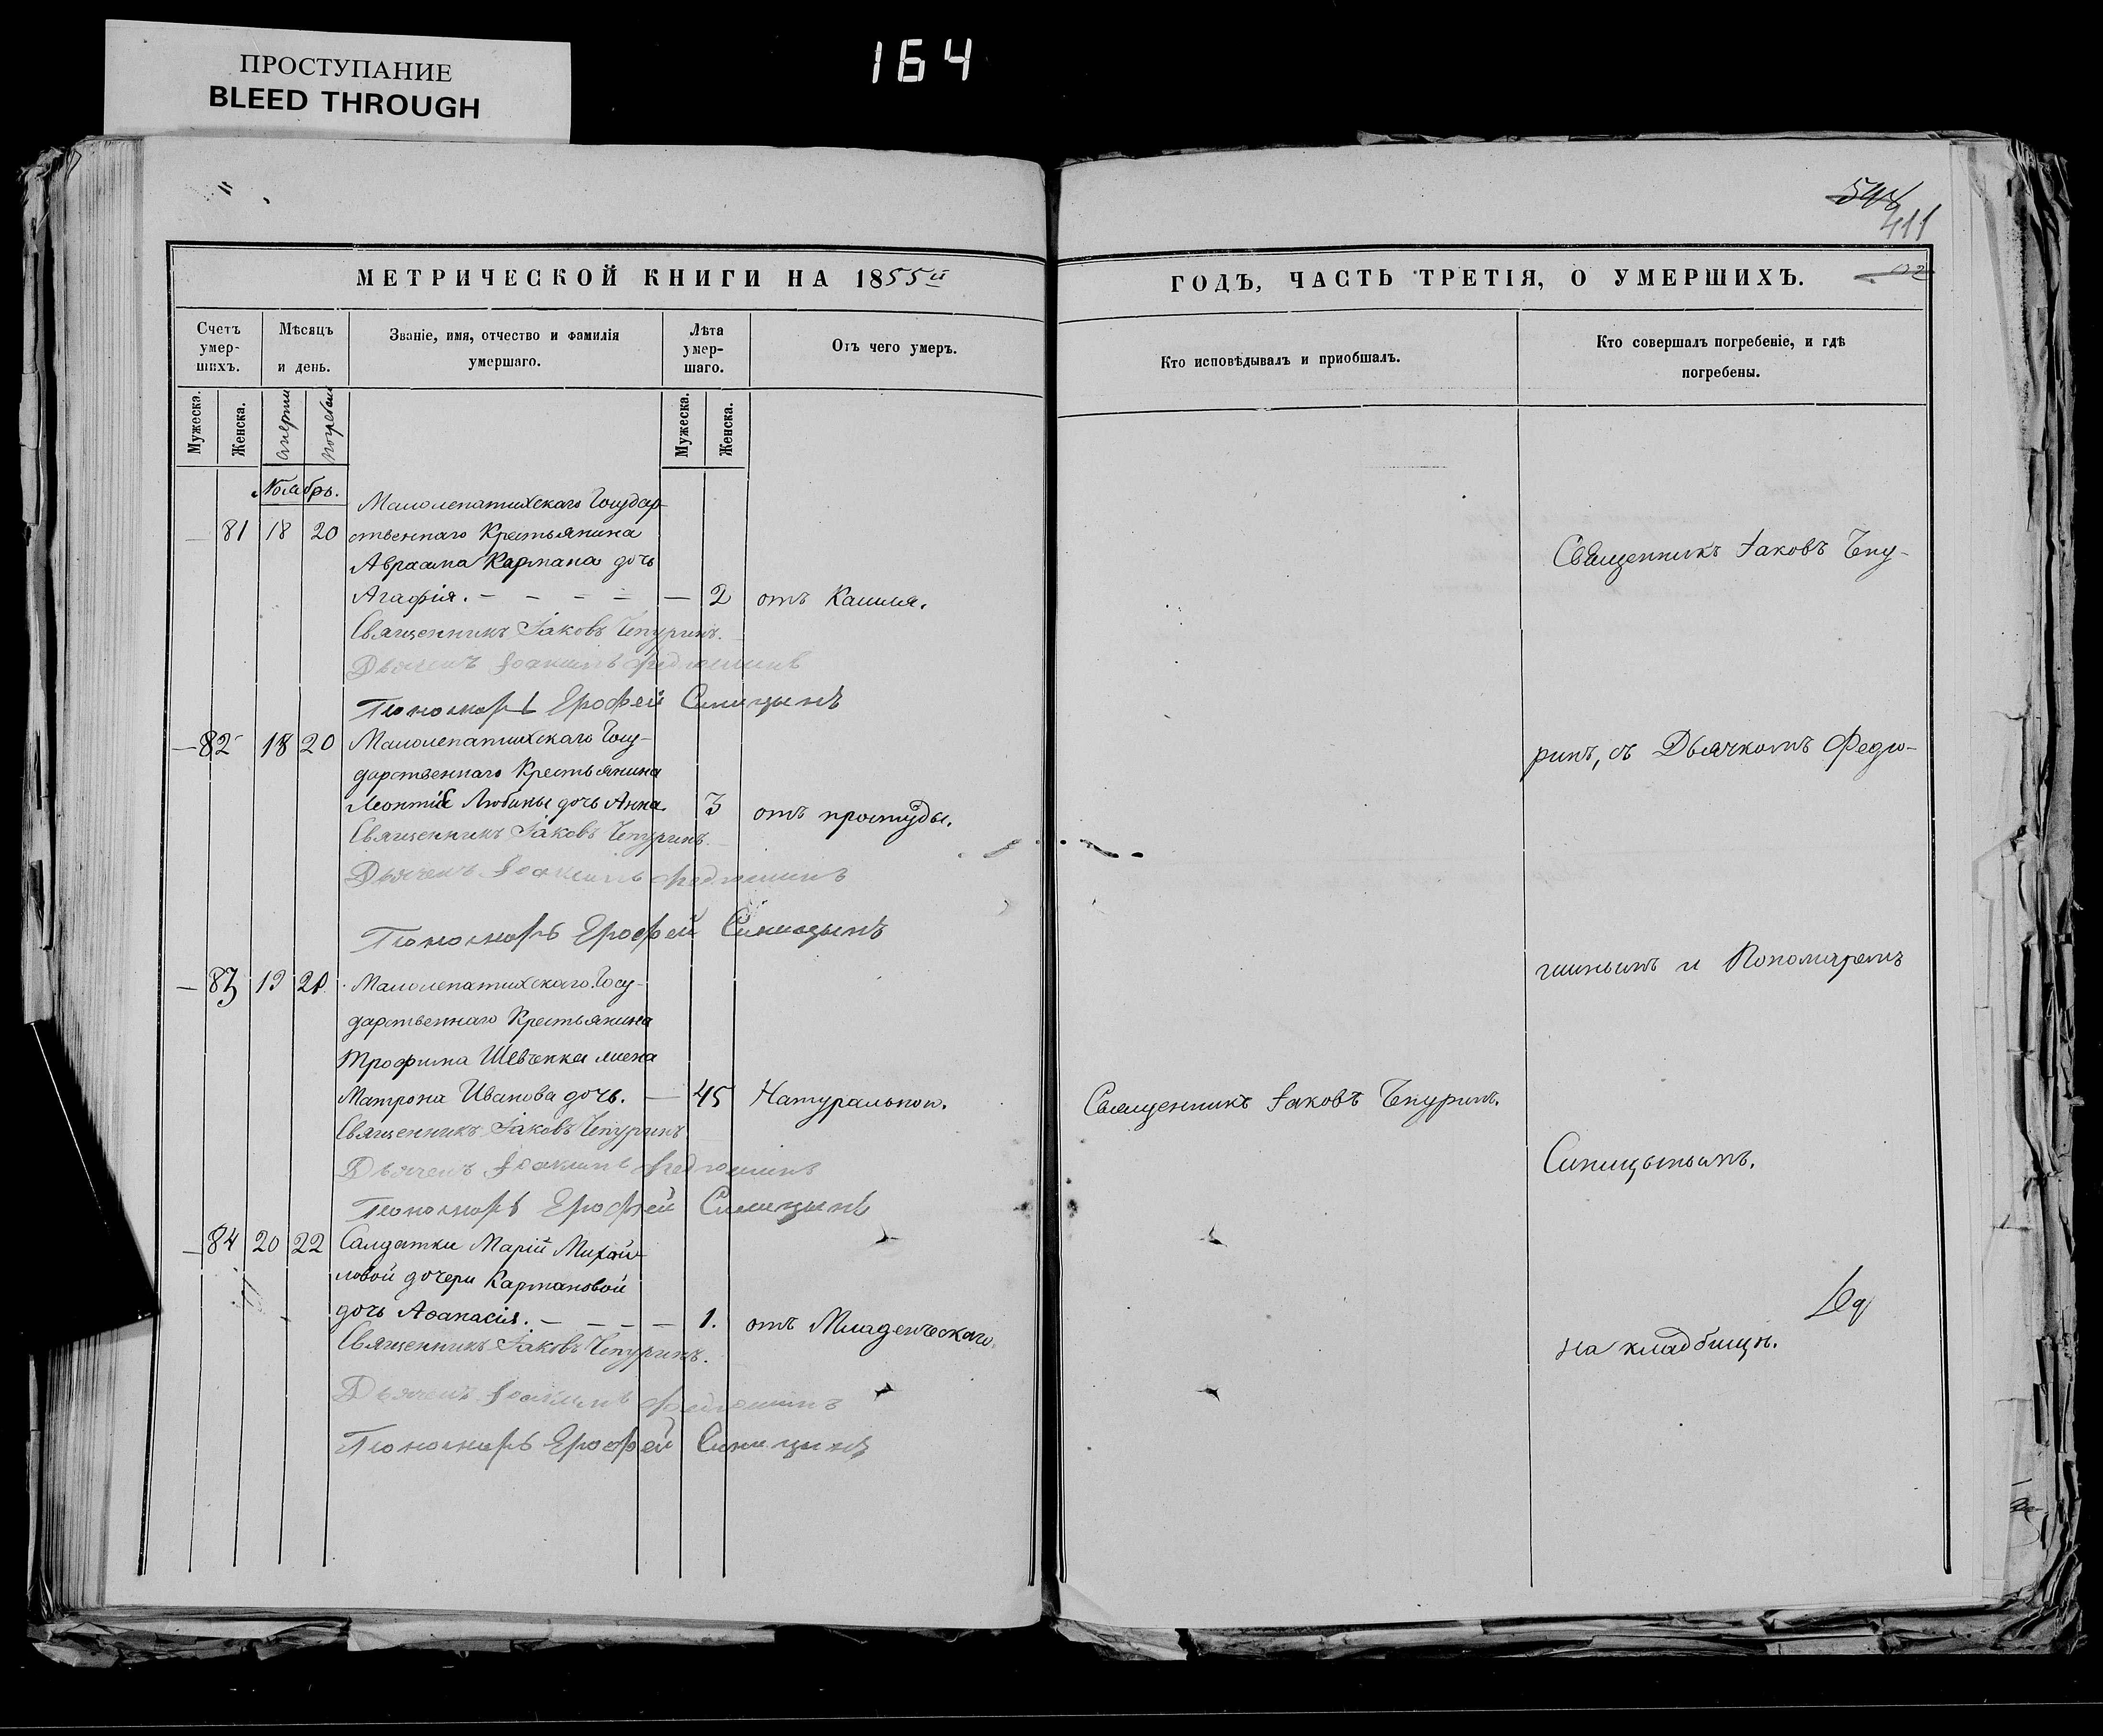 ПРОСТУПАНИЕ
BLEED THROUGH
164
411
МЕТРИЧЕСКОЙ КНИГИ НА 1855й
Счетъ умер-шихъ.
Мѣсяцъ и день.
Званіе, имя, отчество и фамилія умершаго.
Лѣта умер-шаго.
Отъ чего умеръ.
Мужеска.
Женска.
Мужеска.
Женска.
Ноябрь.
Малолепатихскаго Государ-
— 81 18 20 ственнаго Крестьянина
Авраама Картана дочь
Агафія. — — — — — 2 отъ Кашля.
Священникъ Іаковъ Чепуринъ.
Дьячекъ Іоакимъ Федюшинъ
Пономарь Ерофей Синицынъ
— 82 18 20 Малолепатихскаго Госу-
дарственнаго Крестьянина
Леонтія Любины дочь Анна. 3 отъ простуды.
Священникъ Іаковъ Чепуринъ.
Дьячекъ Іоакимъ Федюшинъ
Пономарь Ерофей Синицынъ
— 83 19 21 Малолепатихскаго Госу-
дарственнаго Крестьянина
Трофима Шевченка жена
Матрона Иванова дочь. — 45 Натурально.
Священникъ Іаковъ Чепуринъ
Дьячекъ Іоакимъ Федюшинъ
Пономарь Ерофей Синицынъ
— 84 20 22 Салдатки Марій Михай-
ловой дочери Картановой
дочь Аѳанасія. — — — — 1. отъ Младенческаго.
Священникъ Іаковъ Чепуринъ.
Дьячекъ Іоакимъ Федюшинъ
Пономарь Ерофей Синицынъ
ГОДЪ, ЧАСТЬ ТРЕТІЯ, О УМЕРШИХЪ.
Кто исповѣдывалъ и пріобшалъ.
Кто совершалъ погребеніе, и гдѣ
погребены.
Священникъ Іаковъ Чепу-
ринъ, съ Дьячкомъ Федю-
шинымъ и Пономаремъ
Священникъ Іаковъ Чепуринъ.
Синицынымъ.
на кладбищѣ.